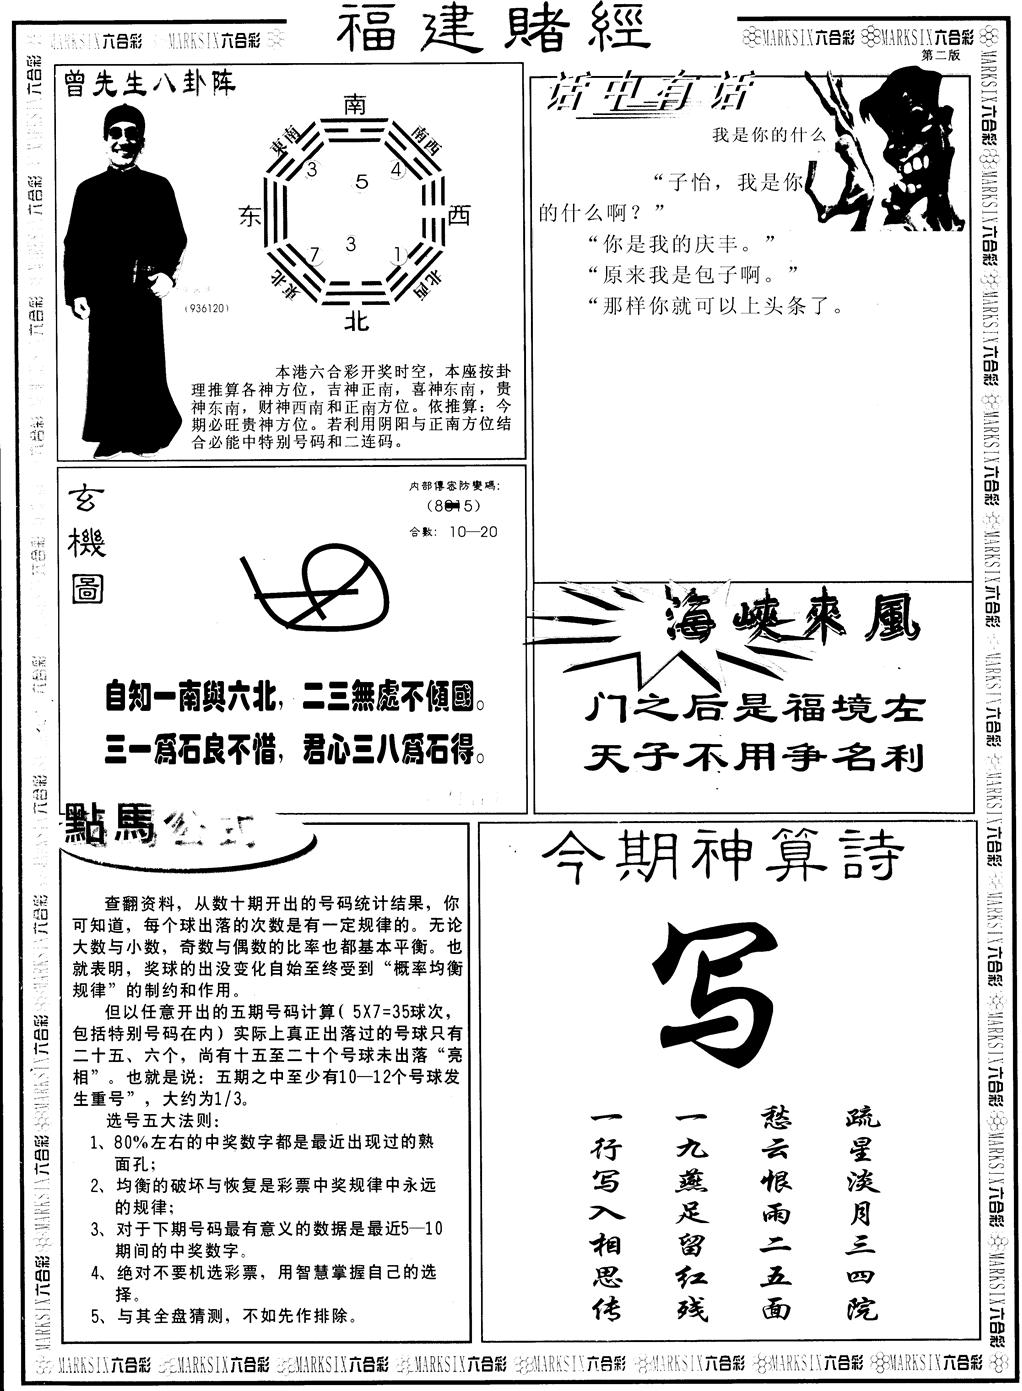 福建賭經
MARKSIX六合彩 MARKSIX六合彩
MARKSIX六合彩 MARKSIX六合彩
第二版
曾先生八卦阵
南
東南
南西
3
4
5
东
西
3
7
1
東北
北西
北
(936120)
本港六合彩开奖时空，本座按卦
理推算各神方位，吉神正南，喜神东南，贵
神东南，财神西南和正南方位。依推算：今
期必旺贵神方位。若利用阴阳与正南方位结
合必能中特别号码和二连码。
话中有话
我是你的什么
“子怡，我是你
的什么啊？”
“你是我的庆丰。”
“原来我是包子啊。”
“那样你就可以上头条了。
玄機圖
内部傳密防變碼：
合數：10—20
自知一南與六北，二三無處不傾國。
三一爲石良不惜，君心三八爲石得。
海峽來風
门之后是福境左
天子不用争名利
點馬公式
查翻资料，从数十期开出的号码统计结果，你
可知道，每个球出落的次数是有一定规律的。无论
大数与小数，奇数与偶数的比率也都基本平衡。也
就表明，奖球的出没变化自始至终受到“概率均衡
规律”的制约和作用。
但以任意开出的五期号码计算( 5X7=35球次，
包括特别号码在内) 实际上真正出落过的号球只有
二十五、六个，尚有十五至二十个号球未出落“亮
相”。也就是说：五期之中至少有10—12个号球发
生重号”，大约为1/3。
选号五大法则：
1、80%左右的中奖数字都是最近出现过的熟
面孔；
2、均衡的破坏与恢复是彩票中奖规律中永远
的规律；
3、对于下期号码最有意义的数据是最近5—10
期间的中奖数字。
4、绝对不要机选彩票，用智慧掌握自己的选
择。
5、与其全盘猜测，不如先作排除。
今期神算詩
写
疏星淡月三四院
愁云恨雨二五面
一九燕足留红残
一行写入相思传
MARKSIX六合彩 MARKSIX六合彩 MARKSIX六合彩 MARKSIX六合彩 MARKSIX六合彩 MARKSIX六合彩 MARKSIX六合彩 MARKSIX六合彩